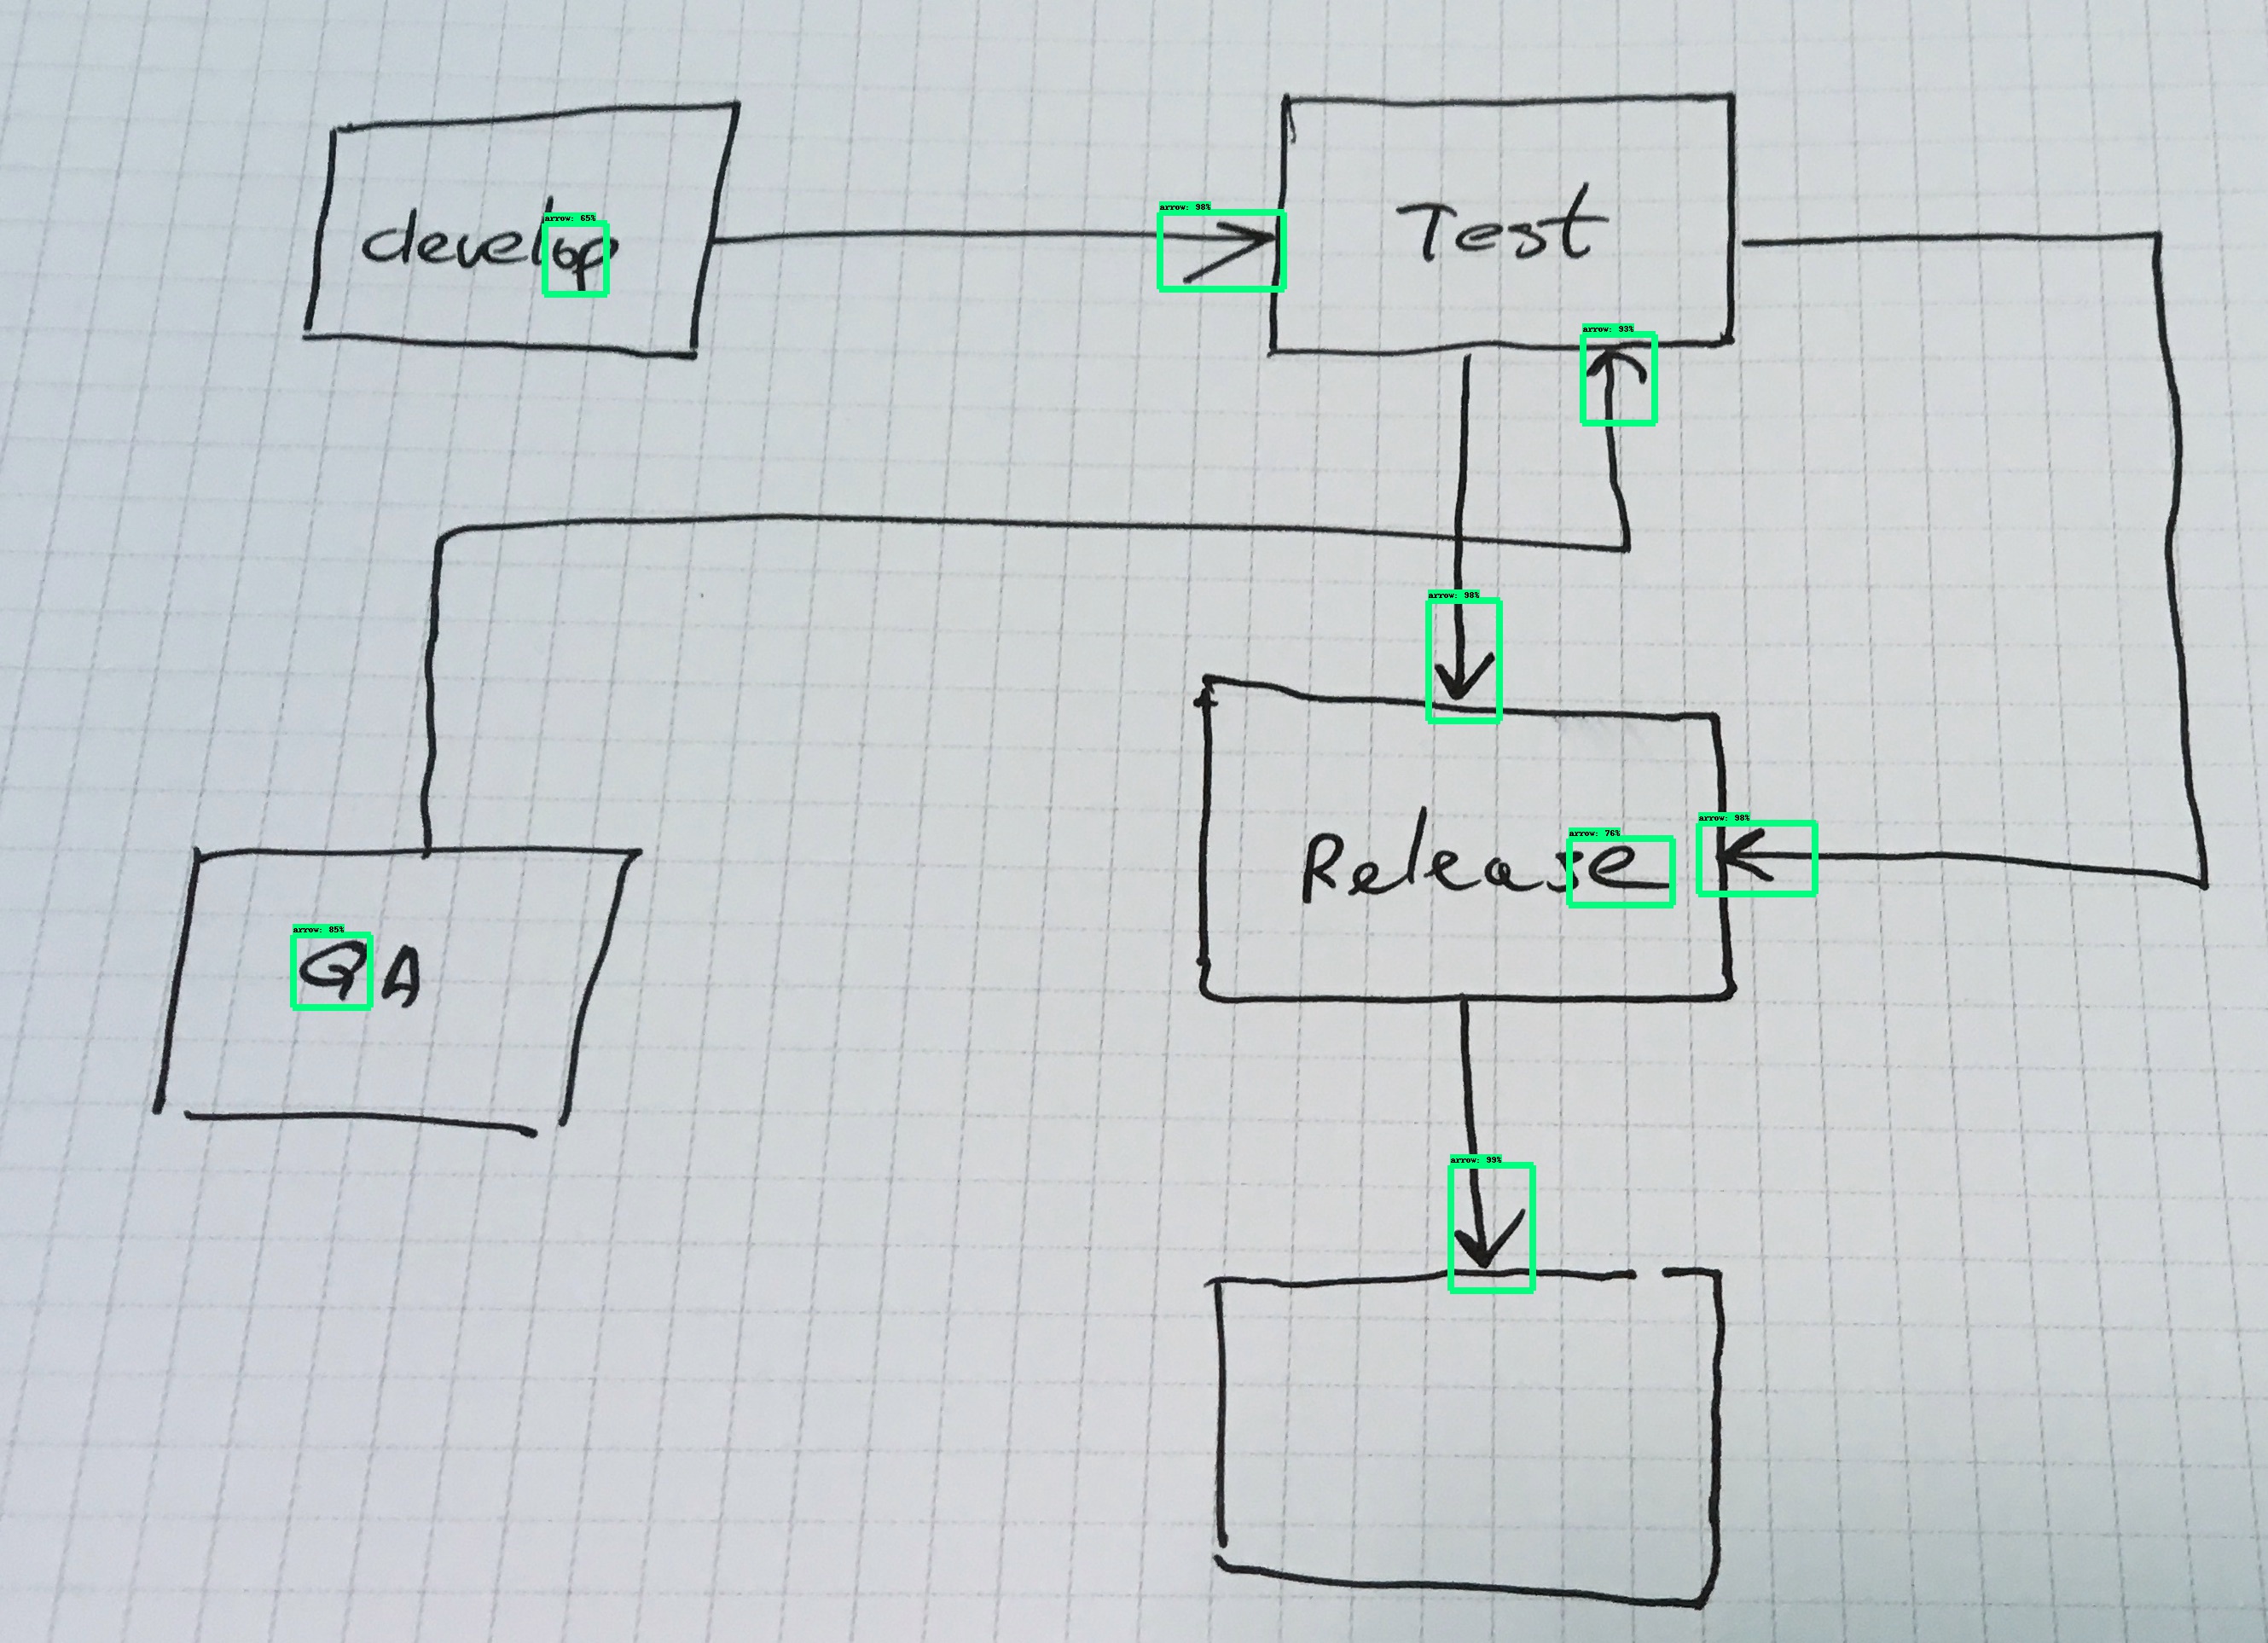 arrow: 65%
develop
arrow: 98%
Test
arrow: 93%
arrow: 98%
arrow: 76%
arrow: 98%
Release
arrow: 85%
QA
arrow: 99%